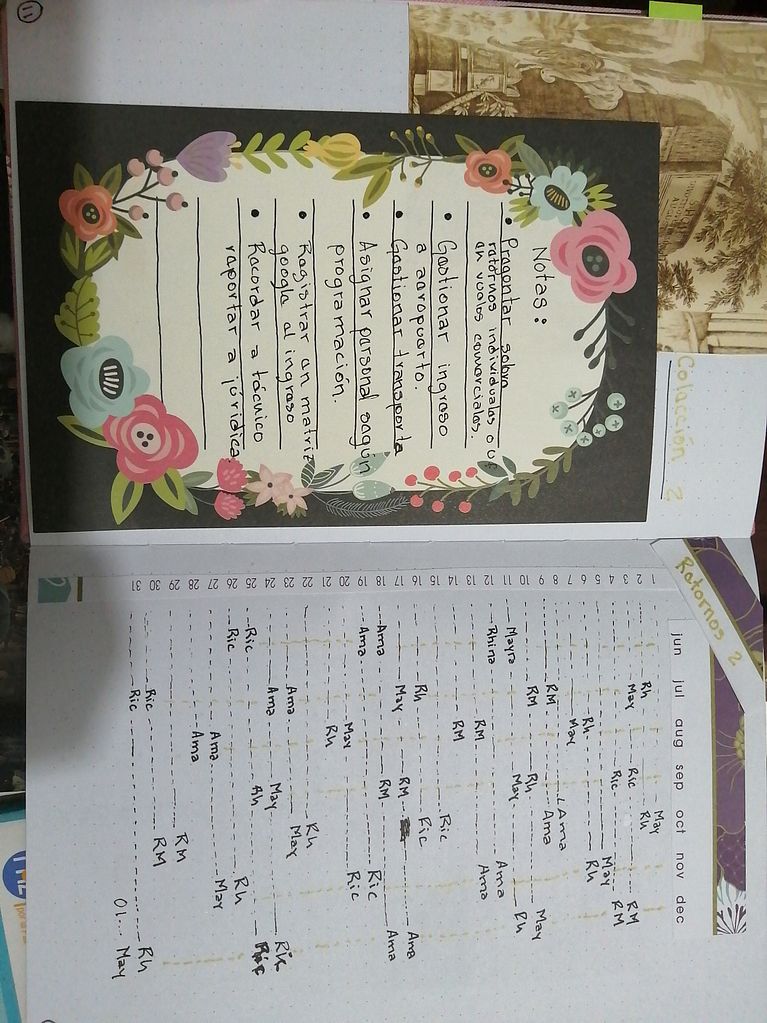 Colección 2
Notas:
• Preguntar sobre
retornos individuales o ue
en vuelos comerciales.
• Gestionar ingreso
a aeropuerto.
• Gestionar transporte
• Asignar personal según
programación.
• Registrar en matriz
google al ingreso
• Recordar a técnico
reportar a jurídica.
Retornos 2
jun jul aug sep oct nov dec
1 May
2 Rh Rh
3 May Ric RM
4 Ric May RM
5 Rh
6 Rh
7 May Ama
8 RM Ama
9 RM Rh May
10 May Rh
11 Mayra Ama
12 Rhina Ama
13 RM
14 RM Ric
15 Rh Ric
16 RM Ama
17 May RM Ama
18 Ama Ric
19 Ama Ric
20 May
21 Rh
22 Rh
23 Ama May
24 Ama May Ric
25 Ric Rh Ric
26 Ric Rh
27 Ama May
28 Ama
29 RM
30 Ric RM Rh
31 Ric 01... May